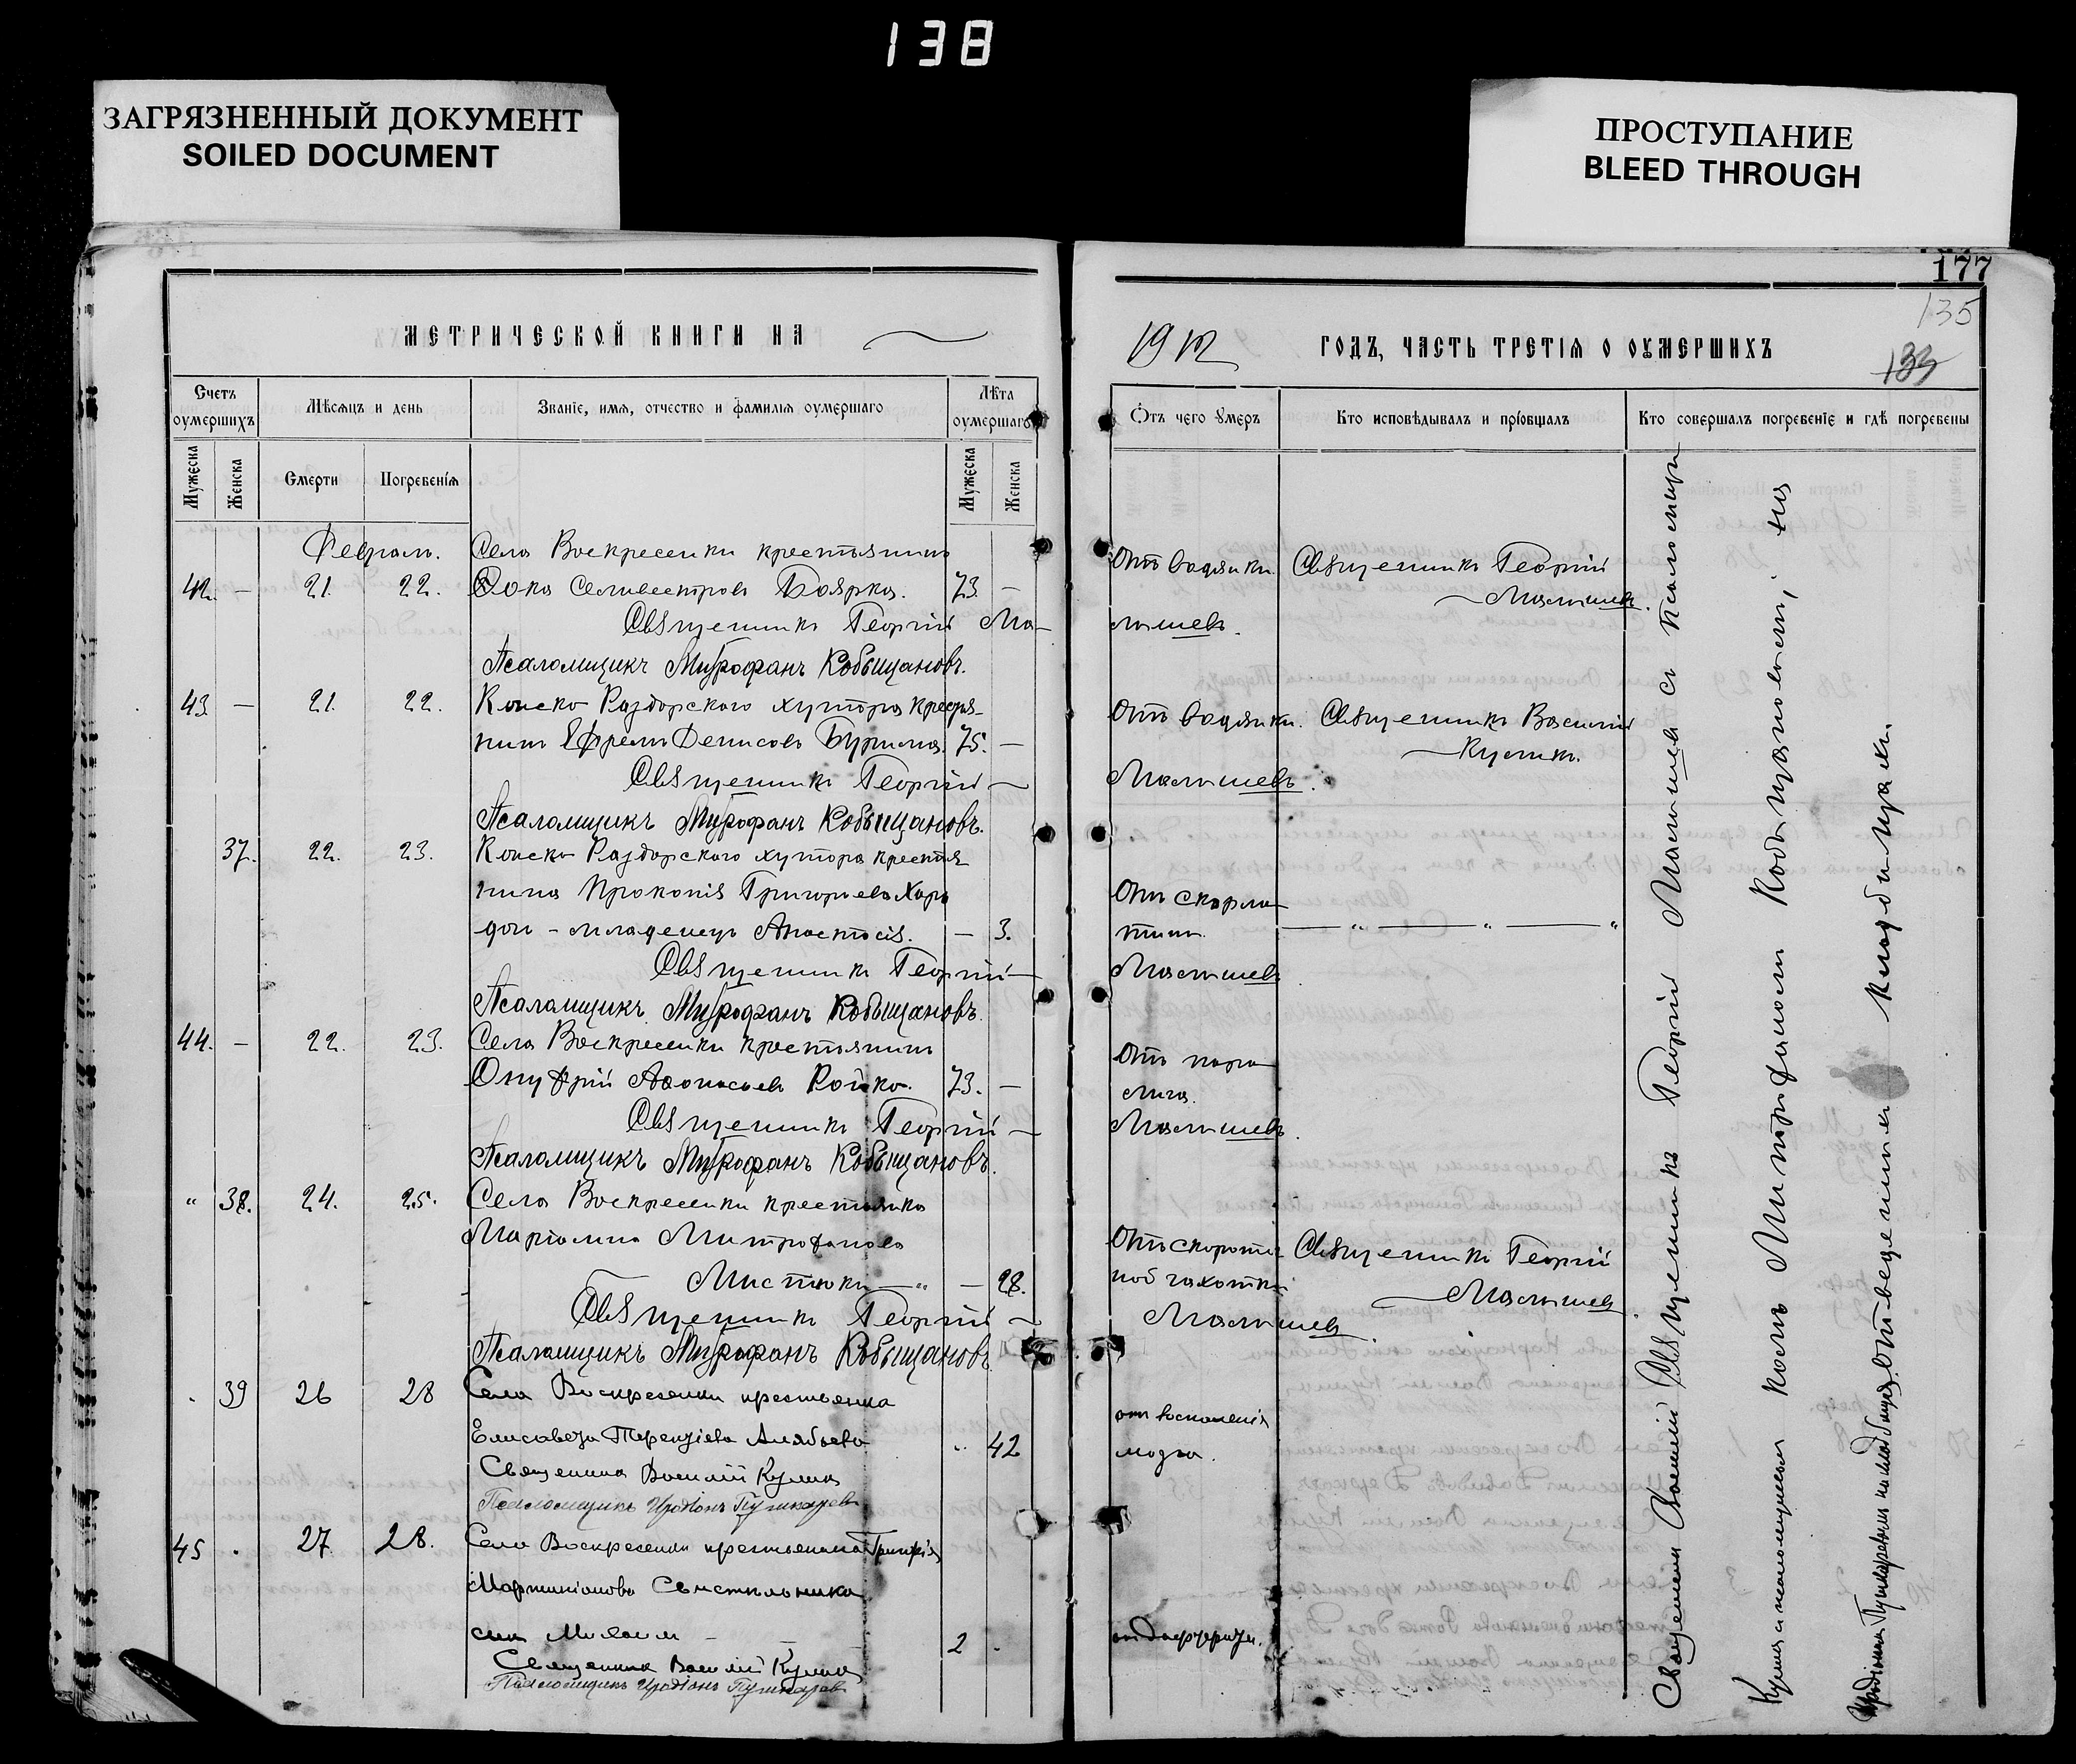 138
ЗАГРЯЗНЕННЫЙ ДОКУМЕНТ
SOILED DOCUMENT
ПРОСТУПАНИЕ
BLEED THROUGH
177
135
133
МЕТРИЧЕСКОЙ КНИГИ НА
1912 ГОДЪ, ЧАСТЬ ТРЕТІЯ О ОУМЕРШИХЪ
Счетъ оумершихъ
Мѣсяцъ и день
Званіе, имя, отчество и фамилія оумершаго
Лѣта оумершаго
Отъ чего умеръ
Кто исповѣдывалъ и пріобщалъ
Кто совершалъ погребеніе и гдѣ погребены
Мужеска
Женска
Смерти
Погребенія
Мужеска
Женска
Февраль. Села Воскресенки крестьянинъ
42. — 21. 22. Ѳока Селивестровъ Боярко. 73. — Отъ водянки. Священникъ Георгій
Малышевъ.
Священникъ Георгій Ма-лышевъ.
Псаломщикъ Митрофанъ Кобыщановъ.
43. — 21. 22. Конско Раздорскаго хутора крестья-
нинъ Ефремъ Денисовъ Бурлига. 75. — Отъ водянки. Священникъ Василій
Куликъ.
Священникъ Георгій — Малышевъ.
Псаломщикъ Митрофанъ Кобыщановъ.
37. 22. 23. Конско Раздорскаго хутора крестья
нина Прокопія Григорьева
младенецъ Анастасія. — 3. Отъ скарла-
тины.
Священникъ Георгій — Малышевъ.
Псаломщикъ Митрофанъ Кобыщановъ.
44. — 22. 23. Села Воскресенки крестьянинъ
Онуфрій Аѳонасьевъ Ройко. 73. — Отъ пара-
лича.
Священникъ Георгій — Малышевъ.
Псаломщикъ Митрофанъ Кобыщановъ.
" 38. 24. 25. Села Воскресенки крестьянка
Маріанна Митрофанова
Мистюки — " — 28. Отъ скороте-
ной чахотки Священникъ Георгій
Малышевъ.
Священникъ Георгій — Малышевъ.
Псаломщикъ Митрофанъ Кобыщановъ.
39 26 28 Села Воскресенки крестьянка
Елисавета Терентіева Алябьева " 42 отъ воспаленія
мозга.
Священникъ Василій Куликъ
Псаломщикъ Иродіонъ Пушкаревъ
45 . 27. 28. Села Воскресенки крестьянина Григорія
Мартиніанова
сынъ 2 . отъ
Священникъ Василій Куликъ
Псаломщикъ Иродіонъ Пушкаревъ
Священникъ Георгій Малышевъ съ Псаломщи-
комъ Митрофаномъ Кобыщановымъ,
Священникъ Василій
Куликъ съ псаломщикомъ
Иродіономъ Пушкаревымъ на кладбищѣ.